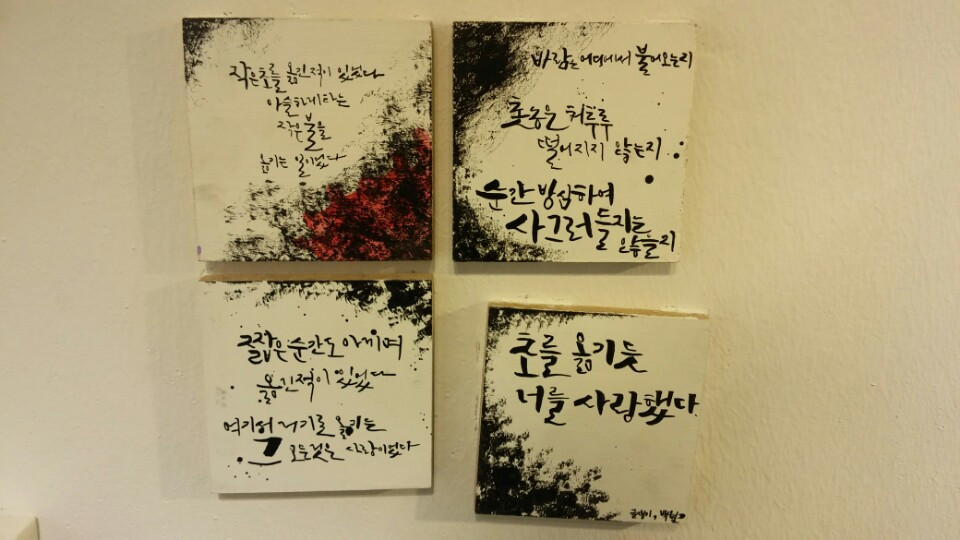 작은 초를 옮긴적이 있었다
아슬하게 타는
작은 불을
옮기는 일이었다
바람은 어디에서 불어오는지
촛농은 허투루
떨어지지 않는지
순간 방심하여
사그러 들지는
않을지
짧은 순간도 아끼며
옮긴적이 있었다
여기서 거기로 옮기는
그 모든것은 사랑이었다
초를 옮기듯
너를 사랑했다